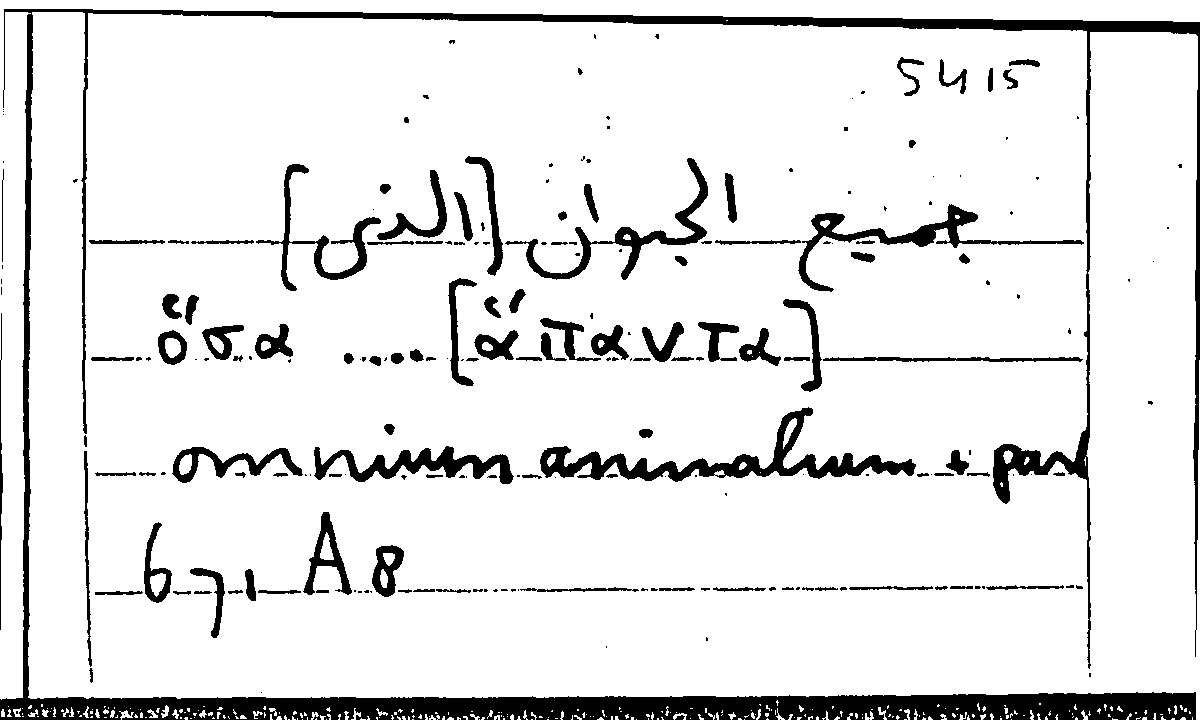 5415
جميع الحيوان [الذى]
ὅσα .... [ἅπαντα]
omnium animalium + part
671 A8